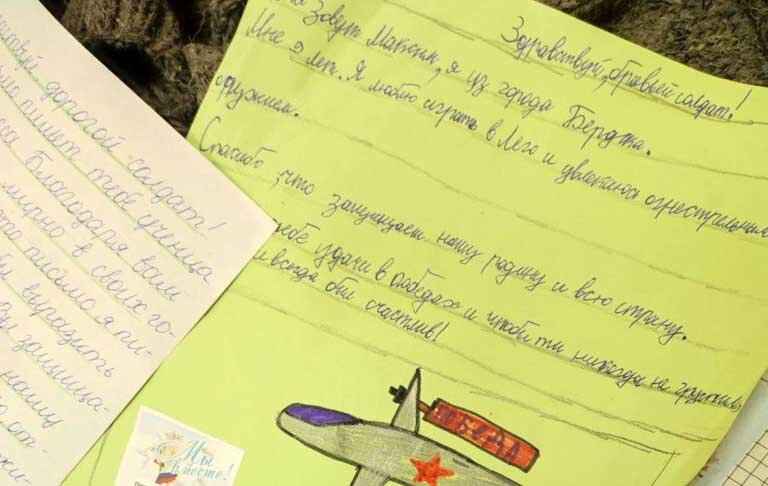 Здравствуй, бравый солдат!
Зовут Максим, я из города Бердска.
Мне 9 лет. Я люблю играть в Лего и увлекаюсь огнестрельным
оружием.
Спасибо, что защищаеш нашу родину и всю страну.
тебе удачи в победах и чтоби ти никогда не грустил,
и всегда бил счастлив!
ПОБЕДА
Мы
вместе!
дорогой солдат!
пишет тебе ученица
Благодаря вам
мирно в своих го-
письмо я пи-
выразить
Вы защища-
нашу